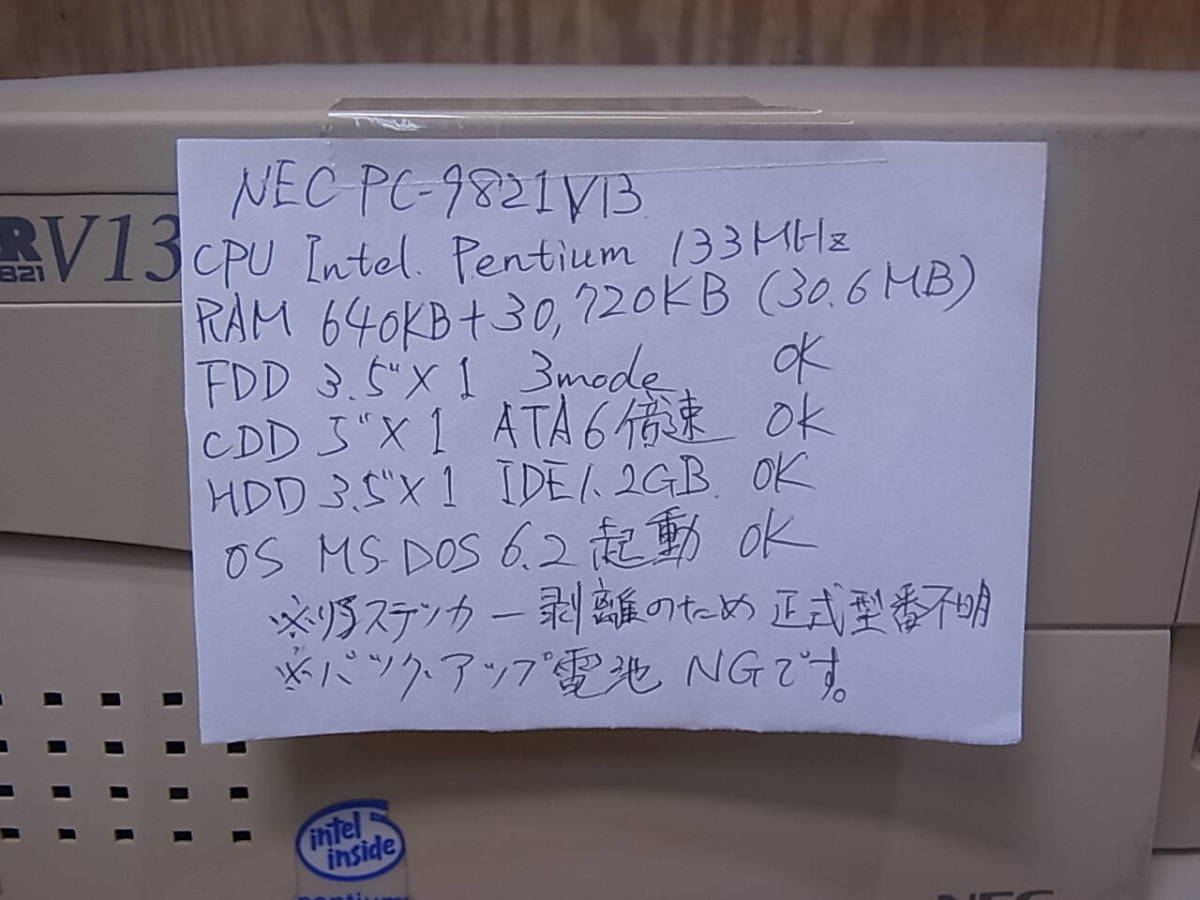 NEC PC-9821V13
R V13
821
CPU Intel. Pentium 133MHz
RAM 640KB+30,720KB (30.6MB)
FDD 3.5"×1 3mode OK
CDD 5"×1 ATA6倍速 OK
HDD 3.5"×1 IDE1.2GB. OK
OS MS-DOS 6.2 起動 OK
※ステッカー剥離のため正式型番不明
※バックアップ電池 NGです。
intel
inside
pentium
NEC